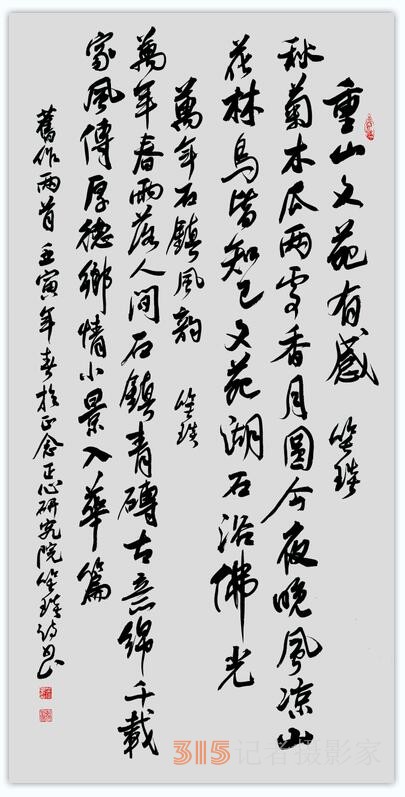 重山文苑有感 笙
秋菊木瓜两香月圓今夜晚風凉山
花林鳥皆知己文苑湖石浴佛光
萬年石鎮風韵 笙
萬年春雨落人间石鎮青磚古意綿千載
家風傳厚德鄉情小景入華篇
舊作两首壬寅年春於正念正心研究院笙诗书
315记者摄影家